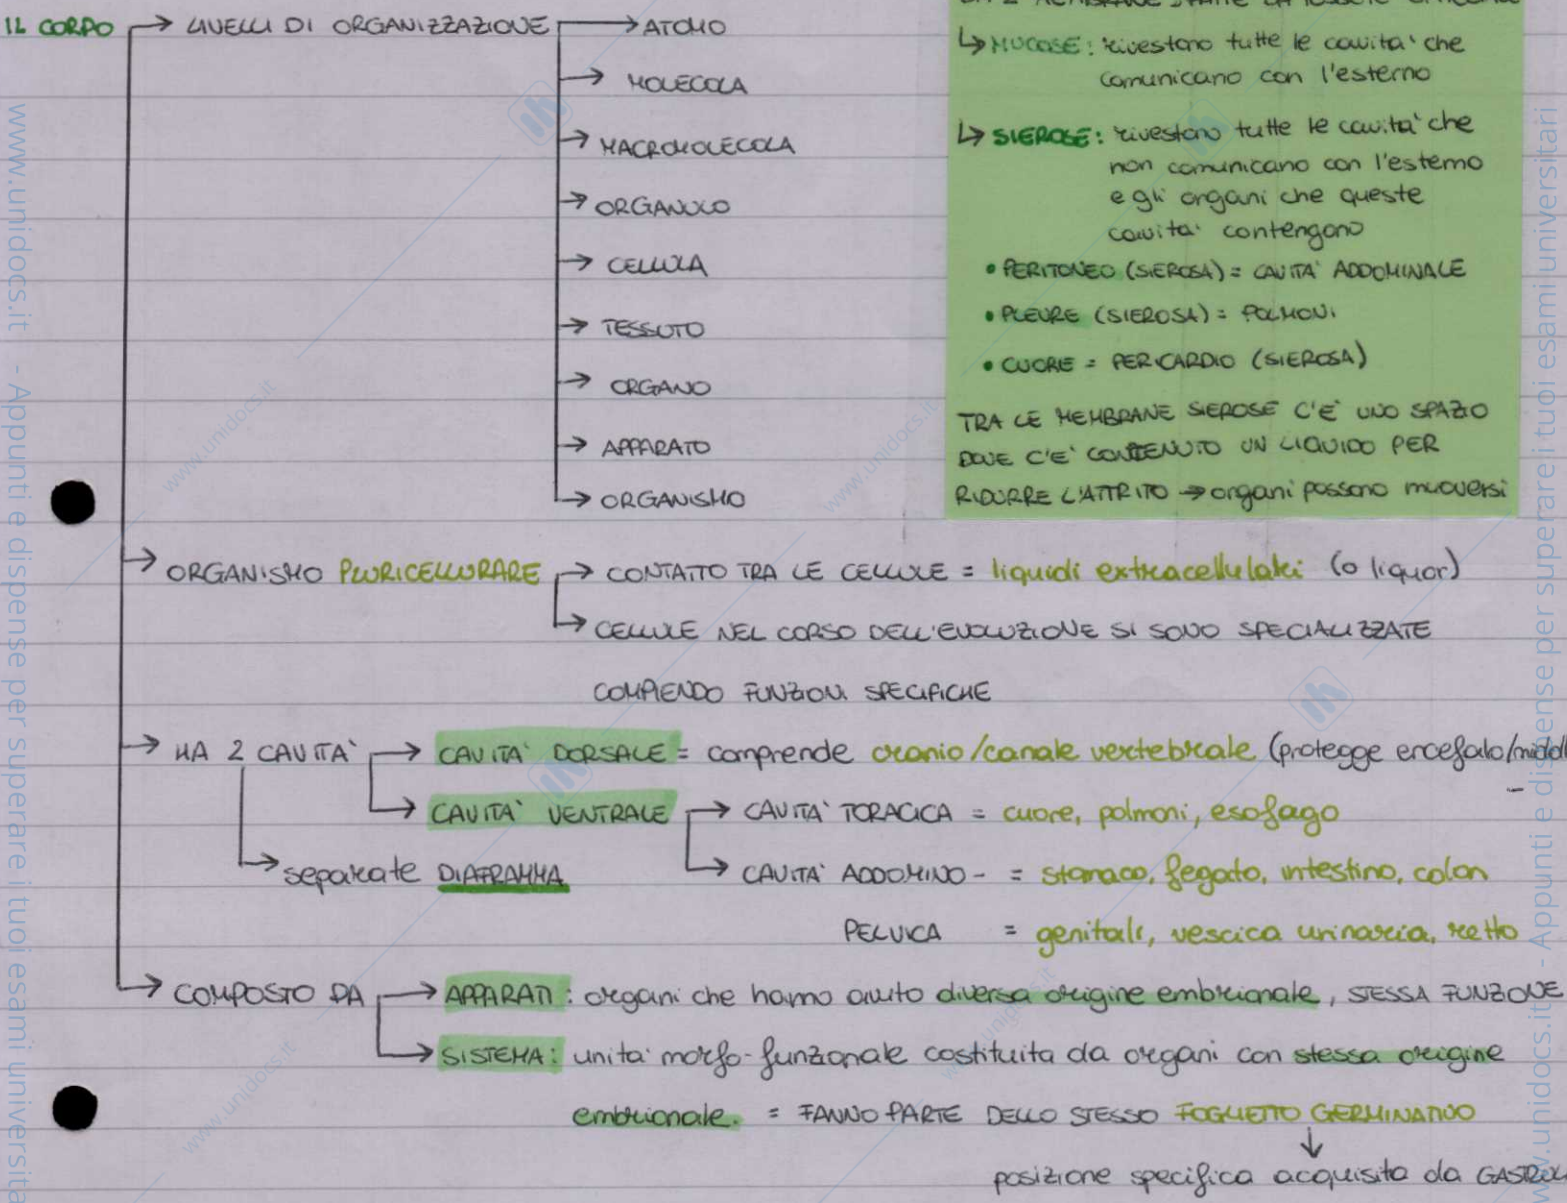 IL CORPO → LIVELLI DI ORGANIZZAZIONE → ATOMO
→ MOLECOLA
→ MACROMOLECOLA
→ ORGANULO
→ CELLULA
→ TESSUTO
→ ORGANO
→ APPARATO
→ ORGANISMO
↳ MUCOSE: rivestono tutte le cavita' che
comunicano con l'esterno
↳ SIEROSE: rivestono tutte le cavita' che
non comunicano con l'esterno
e gli organi che queste
cavita' contengono
• PERITONEO (SIEROSA) = CAVITA' ADDOMINALE
• PLEURE (SIEROSA) = POLMONI
• CUORE = PERICARDIO (SIEROSA)
TRA LE MEMBRANE SIEROSE C'E' UNO SPAZIO
DOVE C'E' CONTENUTO UN LIQUIDO PER
RIDURRE L'ATTRITO → organi possono muoversi
→ ORGANISMO PLURICELLURARE → CONTATTO TRA LE CELLULE = liquidi extracellulari (o liquor)
↳ CELLULE NEL CORSO DELL'EVOLUZIONE SI SONO SPECIALIZZATE
COMPIENDO FUNZIONI SPECIFICHE
→ HA 2 CAVITA' → CAVITA' DORSALE = comprende cranio/canale vertebrale (protegge encefalo/midoll
→ CAVITA' VENTRALE → CAVITA' TORACICA = cuore, polmoni, esofago
→ separate DIAFRAMMA → CAVITA' ADDOMINO - = stomaco, fegato, intestino, colon
PELVICA = genitali, vescica urinaria, retto
→ COMPOSTO DA → APPARATI: organi che hanno avuto diversa origine embrionale, STESSA FUNZIONE
→ SISTEMA: unita' morfo-funzionale costituita da organi con stessa origine
embrionale. = FANNO PARTE DELLO STESSO FOGLIETTO GERMINATIVO
↓
posizione specifica acquisita da
www.unidocs.it - Appunti e dispense per superare i tuoi esami universitari
www.unidocs.it - Appunti e dispense per superare i tuoi esami universitari
www.unidocs.it
www.unidocs.it
www.unidocs.it